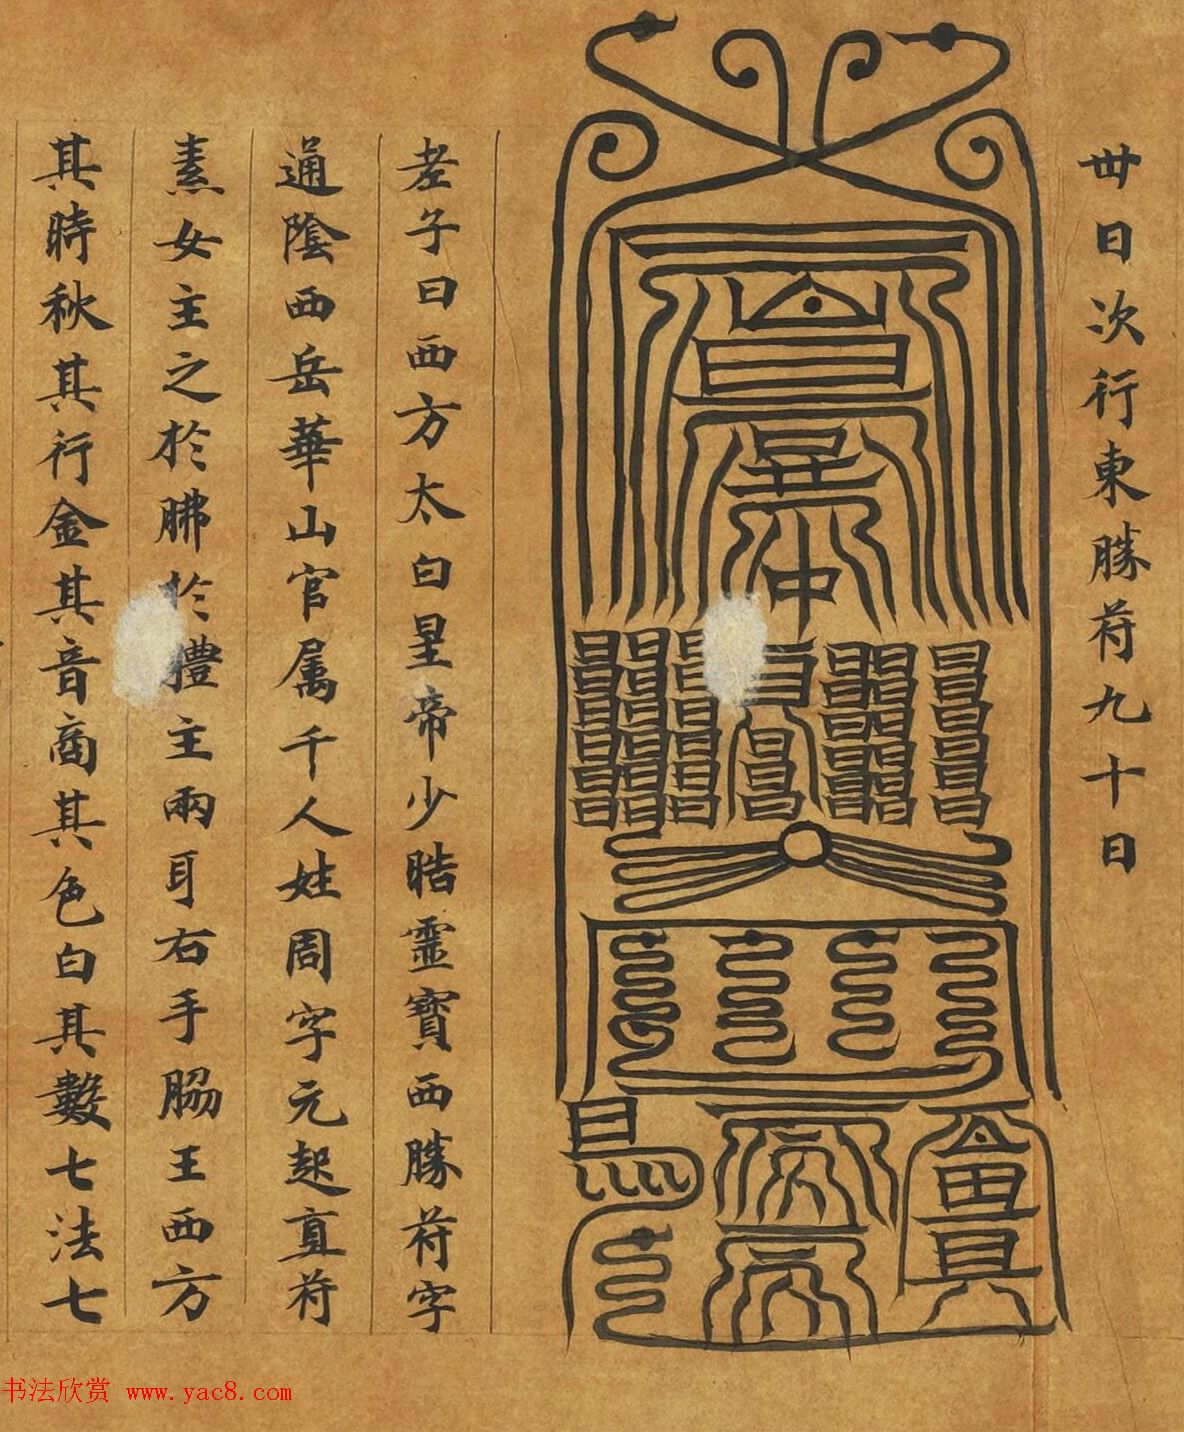 卅日次行東勝符九十日
老子曰西方太白星帝少晧靈寶西勝符字
通陰西岳華山官属千人姓周字元起直符
素女主之於肺於體主兩耳右手脇王西方
其時秋其行金其音商其色白其數七法七
书法欣赏 www.yac8.com